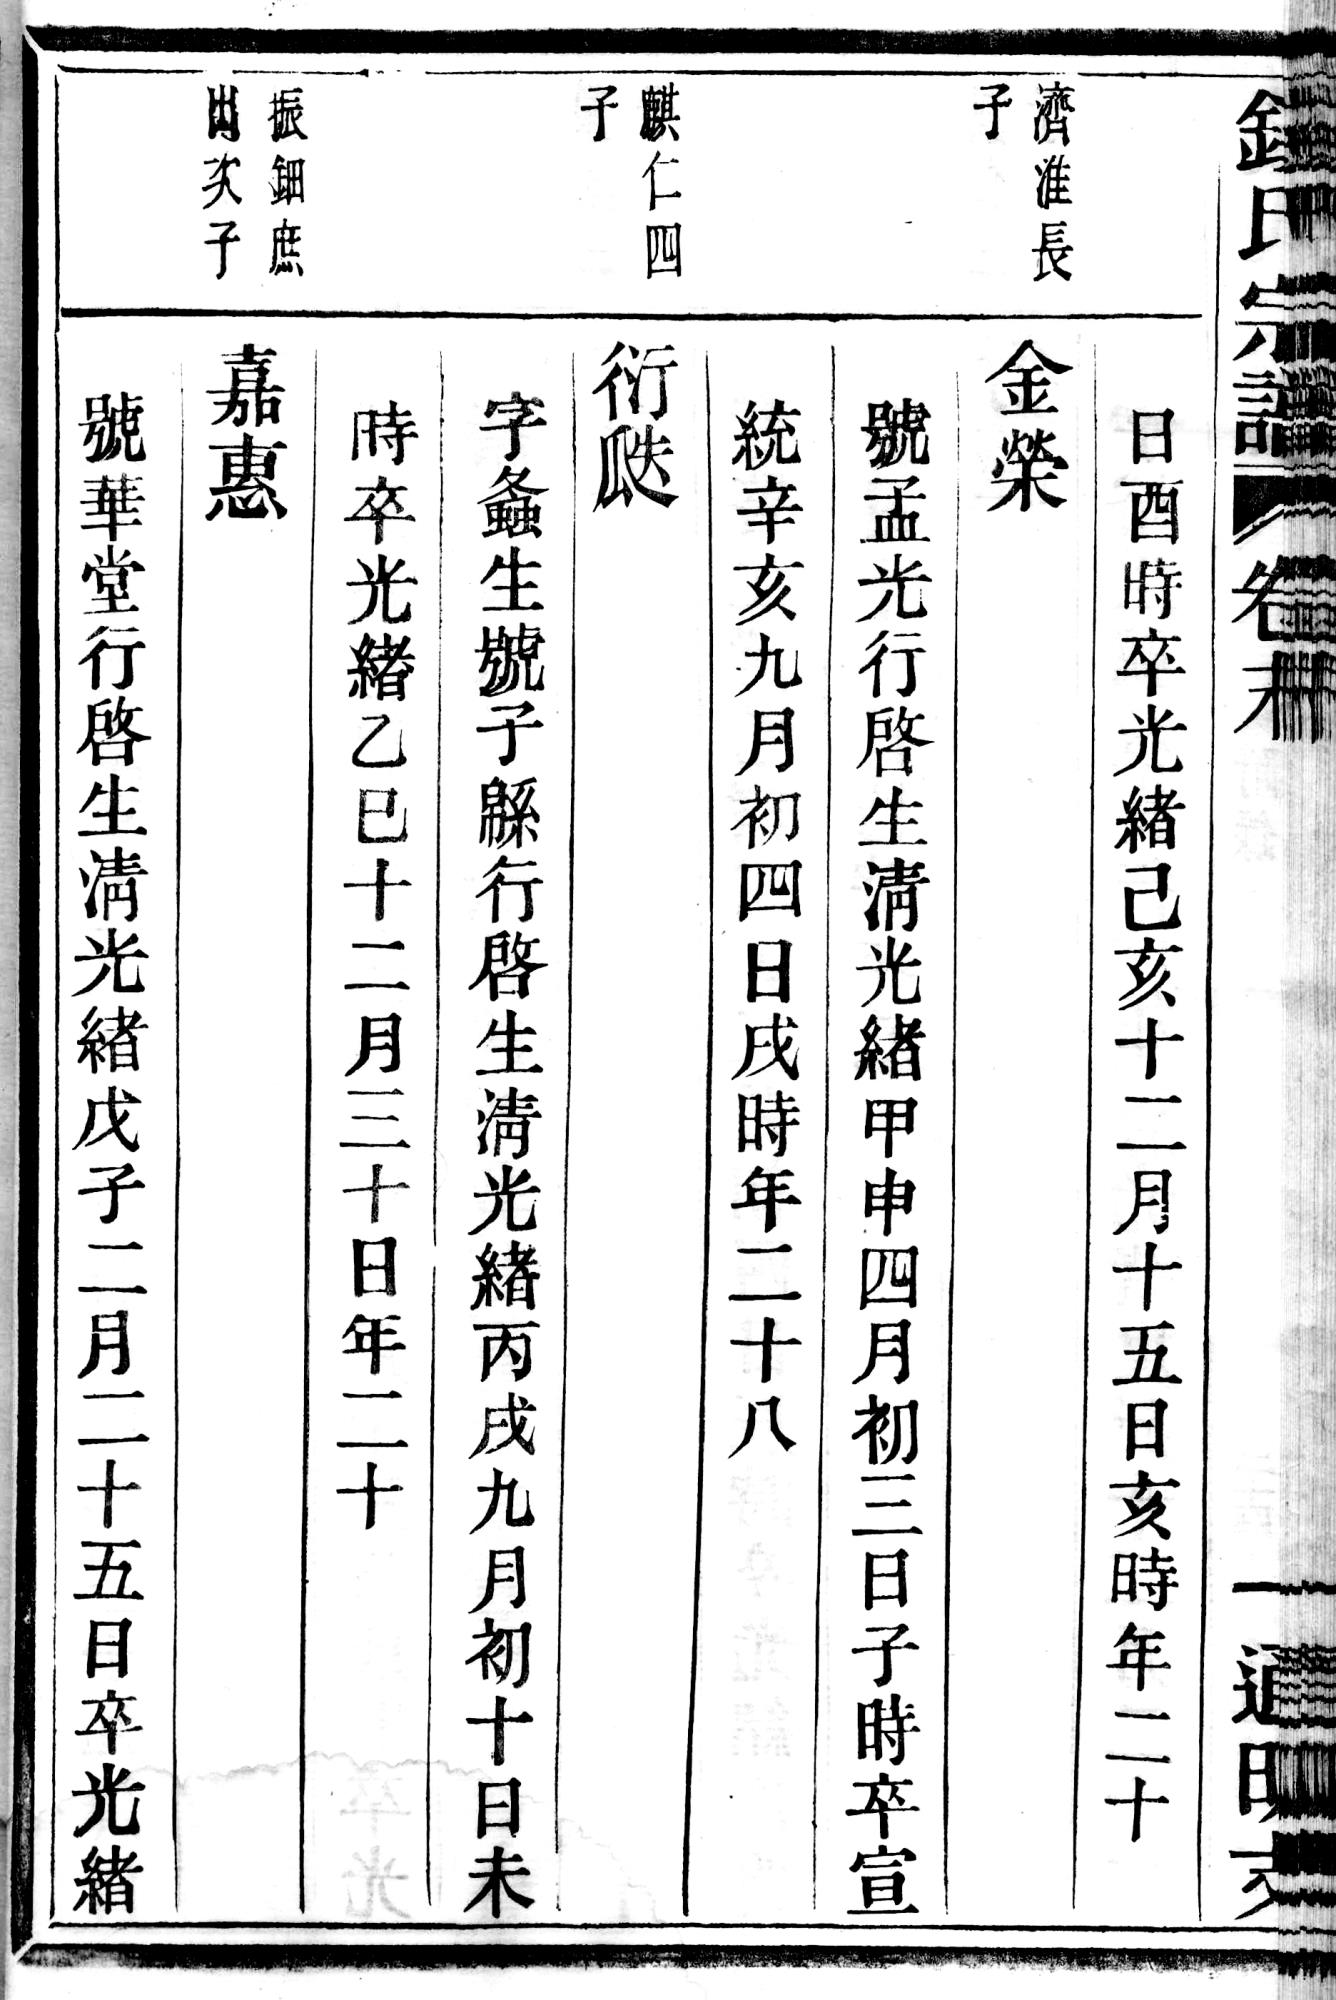 氏宗譜 卷末 一 通明支
日酉時卒光緒己亥十二月十五日亥時年二十
濟淮長
子
金榮
號孟光行啓生淸光緒甲申四月初三日子時卒宣
統辛亥九月初四日戌時年二十八
麒仁四
子
衍瓞
字螽生號子緜行啓生淸光緒丙戌九月初十日未
時卒光緒乙巳十二月三十日年二十
振鈿庶
出次子
嘉惠
號華堂行啓生淸光緒戊子二月二十五日卒光緒